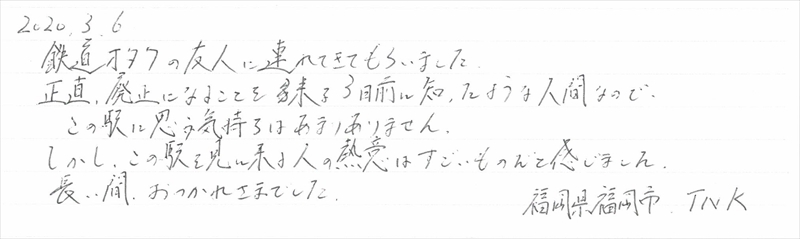 2020.3.6
鉄道オタクの友人に連れてきてもらいました。
正直、廃止になることを来る3日前に知ったような人間なので、
この駅に思う気持ちはあまりありません。
しかし、この駅を見に来る人の熱意はすごいものだと感じました。
長い間、おつかれさまでした。
福岡県福岡市 TNK